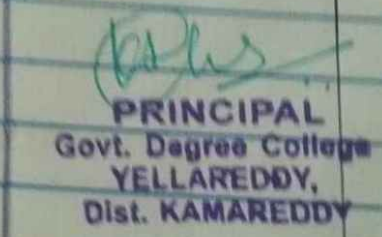 PRINCIPAL
Govt. Degree College
YELLAREDDY,
Dist. KAMAREDDY